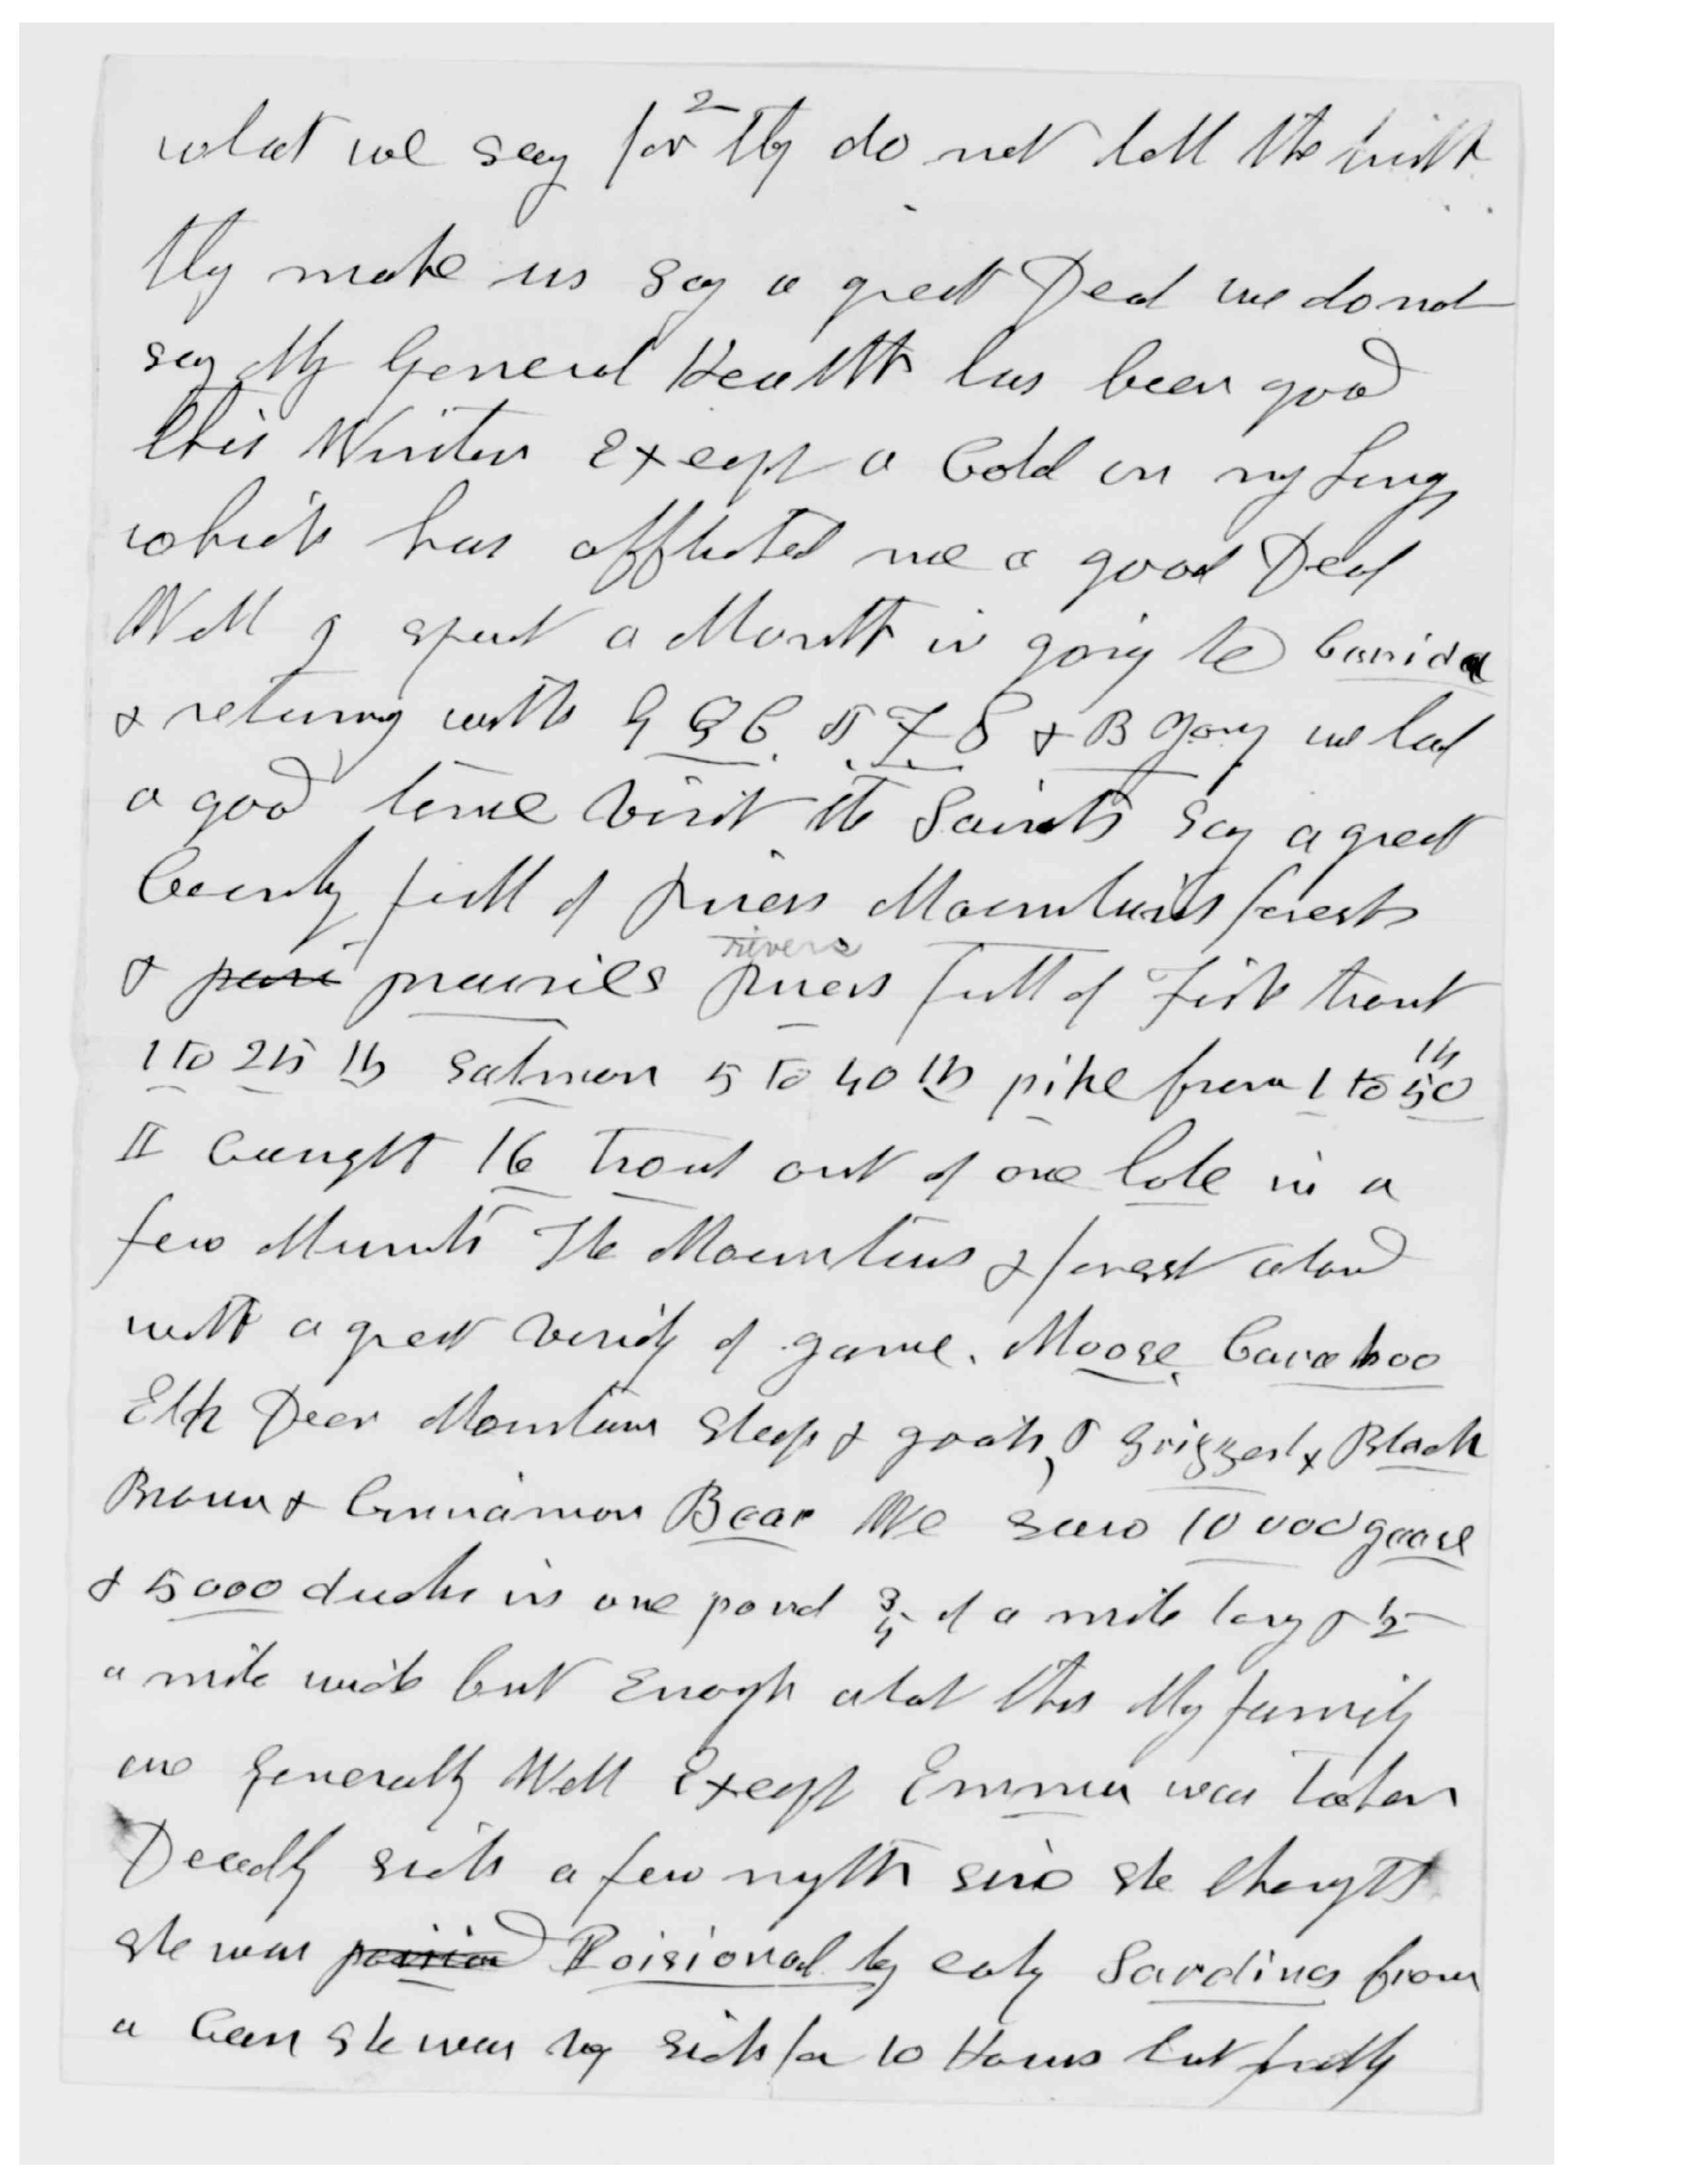 2
what we say for they do not tell the truth
they make us say a great Deal we do not
say My General Health has been good
this Winter Except a Cold on my Lungs
which has afflicted me a good Deal
Well I spent a Month in going to Canida
& returning with G Q C & B Young we had
a good time visit the Saints Say a great
County full of rivers Mountains forests
rivers
& prairies rivers full of Fish trout
1 to 25 lb Salmon 5 to 40 lb pike from 1 to 50 lb
I Caught 16 Trout out of one hole in a
few Munits The Mountins & forest abound
with a great variety of game. Moose, Caraboo
Elk Deer Mountain Sheep & goats, & Grizzerl & Black
Brown & Cinnamon Bear We saw 10 000 geese
& 5000 ducks in one pond 3/4 of a mile long & 1/2
a mile wide but Enough about this My family
are Generally Well Except Emma was Taken
Deadly sick a few nights since she thought
she was Poisioned by eating Sardines from
a Can she was very sick for 10 Hours but finally